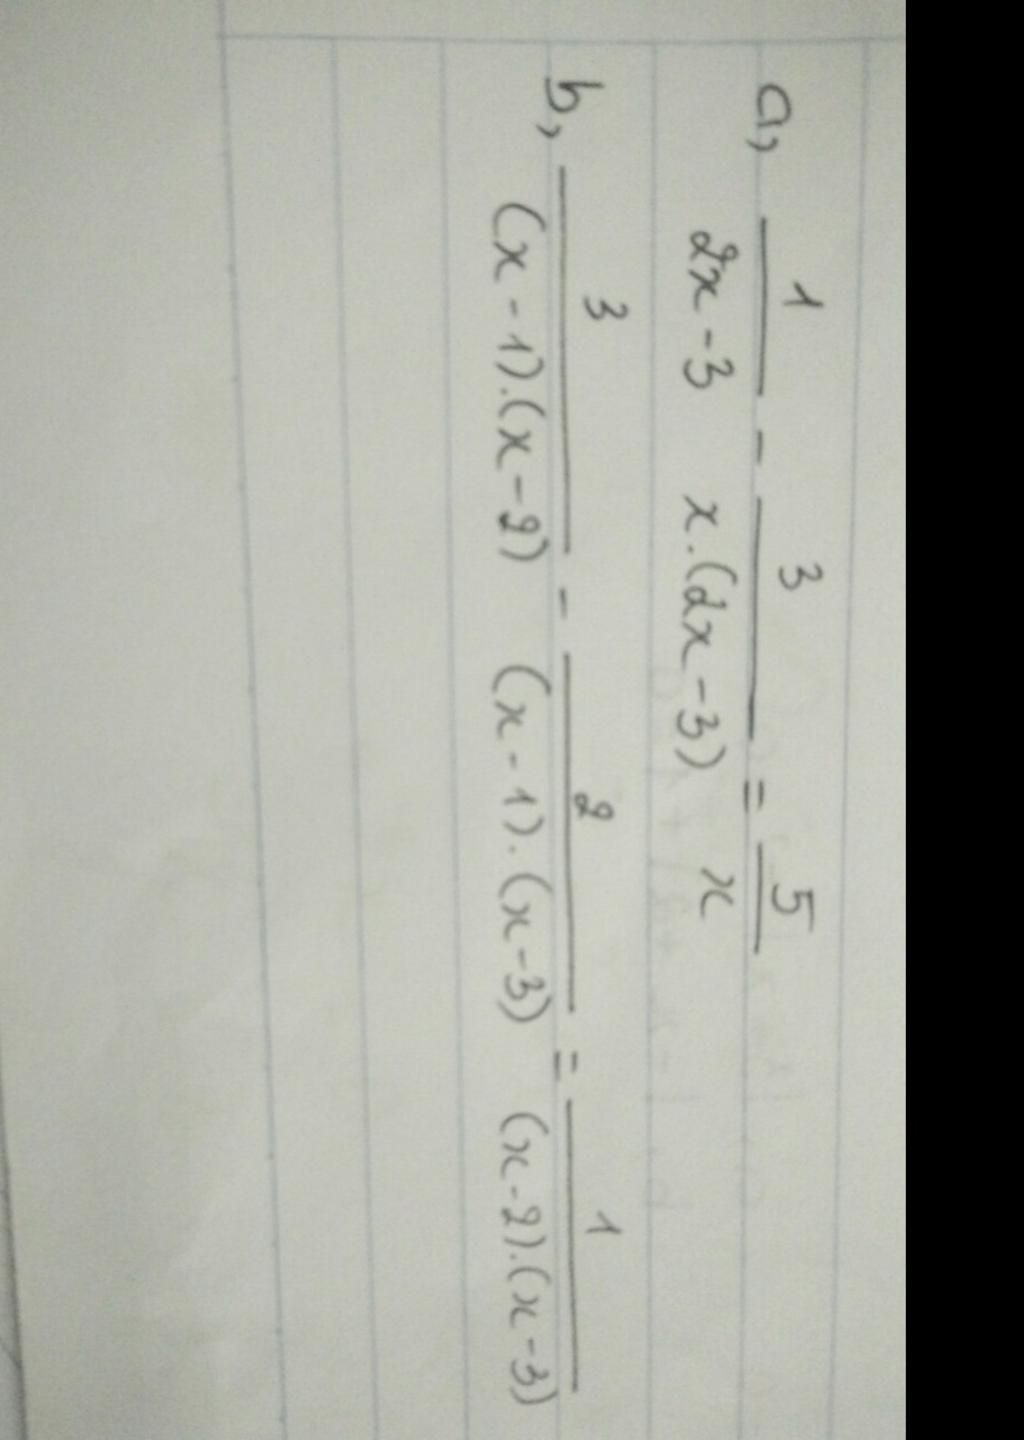 a, 1/(2x-3) - 3/(x.(2x-3)) = 5/x
b, 3/((x-1).(x-2)) - 2/((x-1).(x-3)) = 1/((x-2).(x-3))